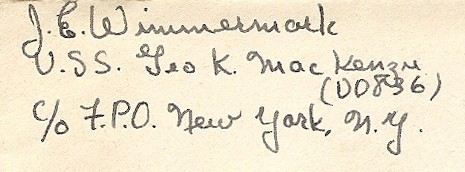 J.E. Wimmermark
U.SS. Geo K. MacKenzie
(DD836)
c/o F.P.O. New York, N.Y.